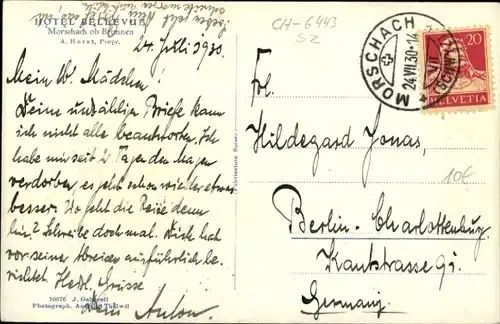 HOTEL BELLEVUE
Morschach ob Brunnen
A. Horat, Propr.
24. Juli 1930.
Mein lb. Mädchen!
Deine unzähligen Briefe kann
ich nicht alle beantworten. Ich
habe mir seit 2 Tagen den Magen
verdorben, es geht schon wieder etwas
besser. Wo geht die Reise denn
hin? Schreibe doch mal. Dick hat
vor seiner Abreise ausführlich be-
richtet. Herzl. Grüsse
Dein Anton.
10076 J. Gaberell
Photograph. Thalwil
CH-6443
SZ
MORSCHACH
24.VII.30-14
20
HELVETIA
Frl.
Hildegard Jonas,
Berlin-Charlottenburg
Kantstrasse 91.
Germany.
10€